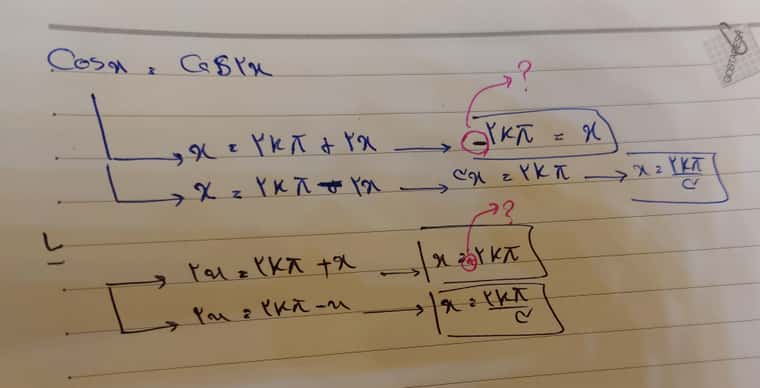 Cosx = Cos۲x
?
x = ۲kπ + ۲x → -۲kπ = x
x = ۲kπ - ۲x → ۳x = ۲kπ → x = ۲kπ/۳
?
یا
۲x = ۲kπ + x → x = ۲kπ
۲x = ۲kπ - x → x = ۲kπ/۳